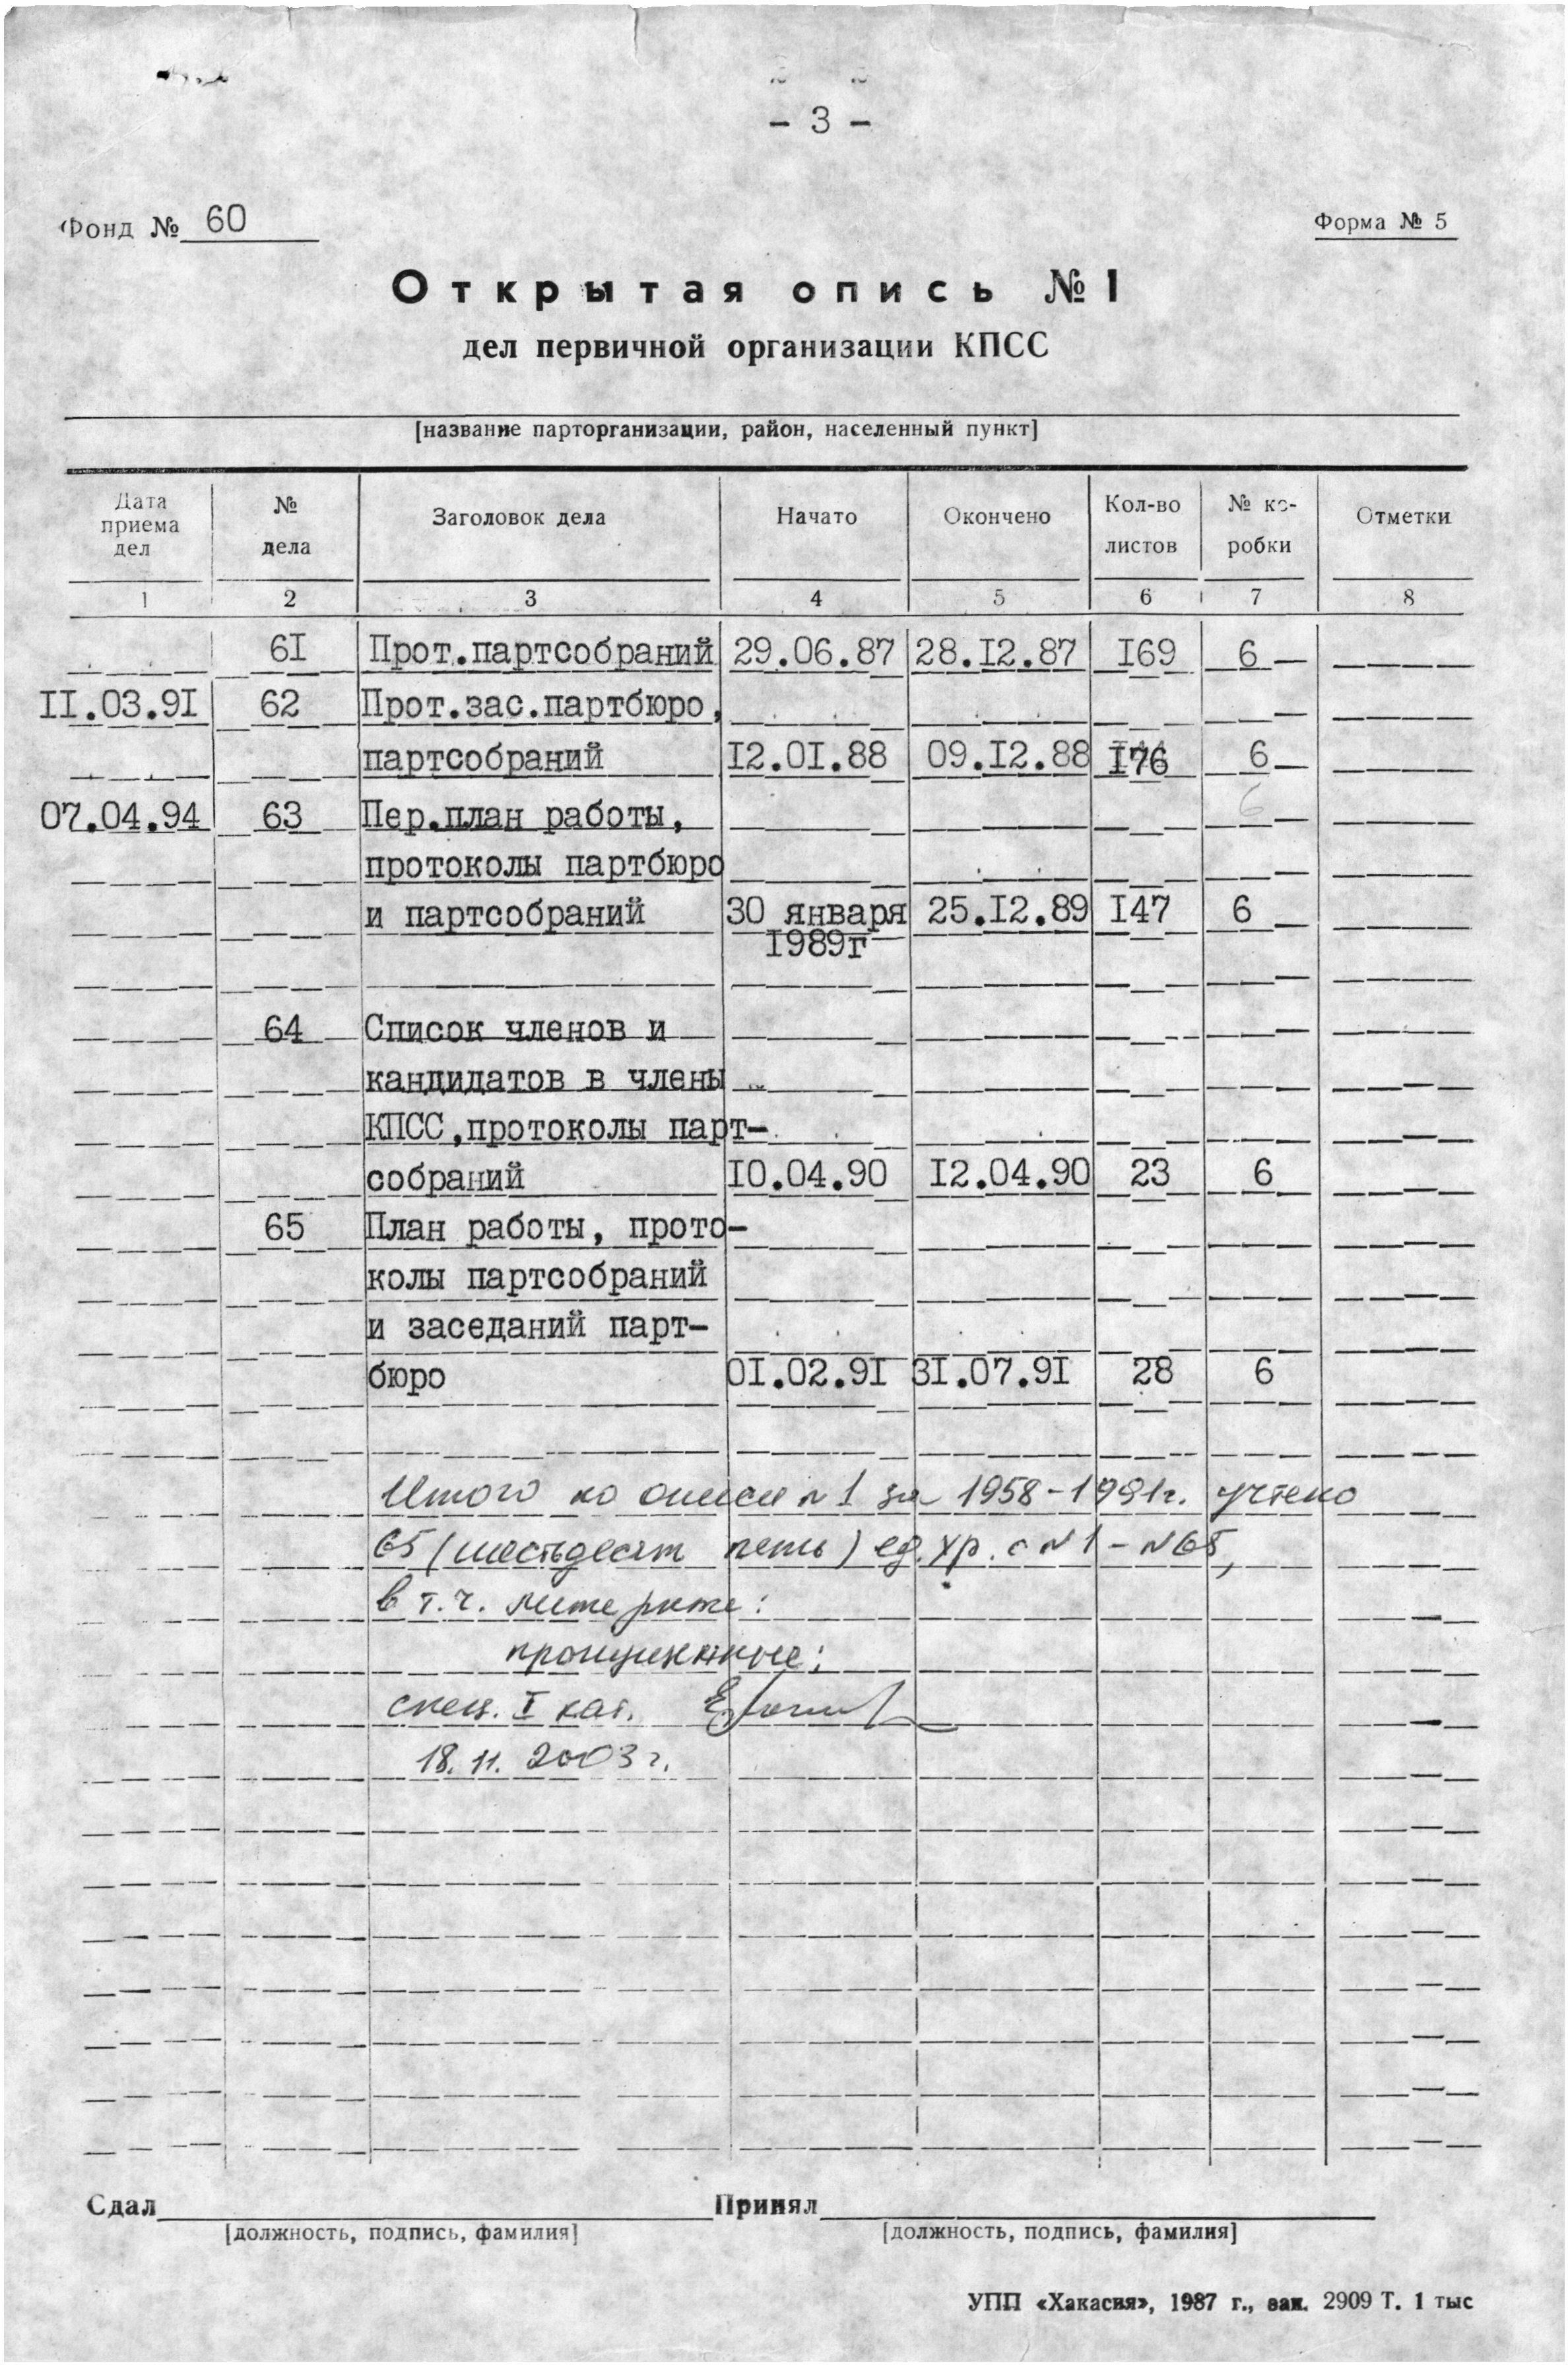 - 3 -
Фонд № 60
Форма № 5
Открытая опись № 1
дел первичной организации КПСС
[название парторганизации, район, населенный пункт]
Дата приема дел № дела Заголовок дела Начато Окончено Кол-во листов № ко- робки Отметки
1 2 3 4 5 6 7 8
61 Прот.партсобраний 29.06.87 28.12.87 169 6
11.03.91 62 Прот.зас.партбюро,
партсобраний 12.01.88 09.12.88 176 6
07.04.94 63 Пер.план работы, 6
протоколы партбюро
и партсобраний 30 января 25.12.89 147 6
1989г
64 Список членов и
кандидатов в члены
КПСС,протоколы парт-
собраний 10.04.90 12.04.90 23 6
65 План работы, прото-
колы партсобраний
и заседаний парт-
бюро 01.02.91 31.07.91 28 6
Итого по описи № 1 за 1958-1991г. учтено
65 (шестьдесят пять) ед. хр. с №1 - №65,
в т.ч. литерные:
пропущенные:
спец. I кат.
18.11.2003 г.
Сдал Принял
[должность, подпись, фамилия] [должность, подпись, фамилия]
УПП «Хакасия», 1987 г., зак. 2909 Т. 1 тыс